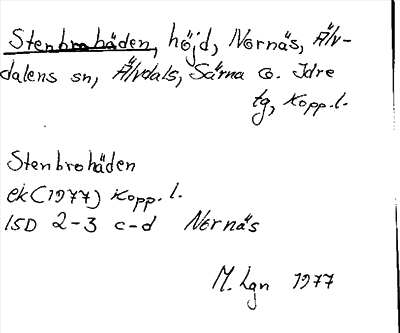 Stenbrohäden, höjd, Nornäs, Älv-
dalens sn, Älvdals, Särna o. Idre
tg, Kopp. l.
Stenbrohäden
ek (1977) Kopp. l.
15D 2-3 c-d Nornäs
M. Lgn 1977